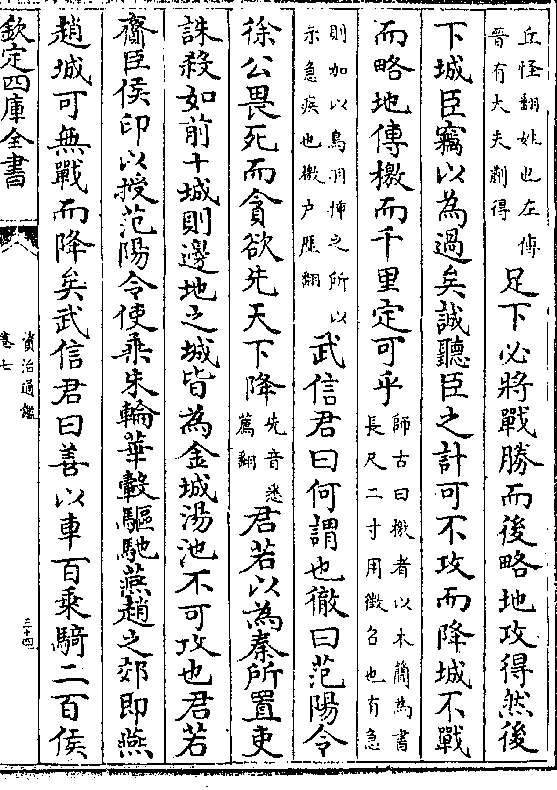 丘怪翻姓也左傳
晉有大夫蒯得
足下必將戰勝而後略地攻得然後
下城臣竊以為過矣誠聽臣之計可不攻而降城不戰
而略地傳檄而千里定可乎
師古曰檄者以木簡為書
長尺二寸用徵召也有急
則加以鳥羽揷之所以
示急疾也檄户歷翻
武信君曰何謂也徹曰范陽令
徐公畏死而貪欲先天下降
先音悉
薦翻
君若以為秦所置吏
誅殺如前十城則邊地之城皆為金城湯池不可攻也君若
齎臣侯印以授范陽令使乘朱輪華轂驅馳燕趙之郊即燕
趙城可無戰而降矣武信君曰善以車百乘騎二百侯
欽定四庫全書
資治通鑑
卷七
三十四